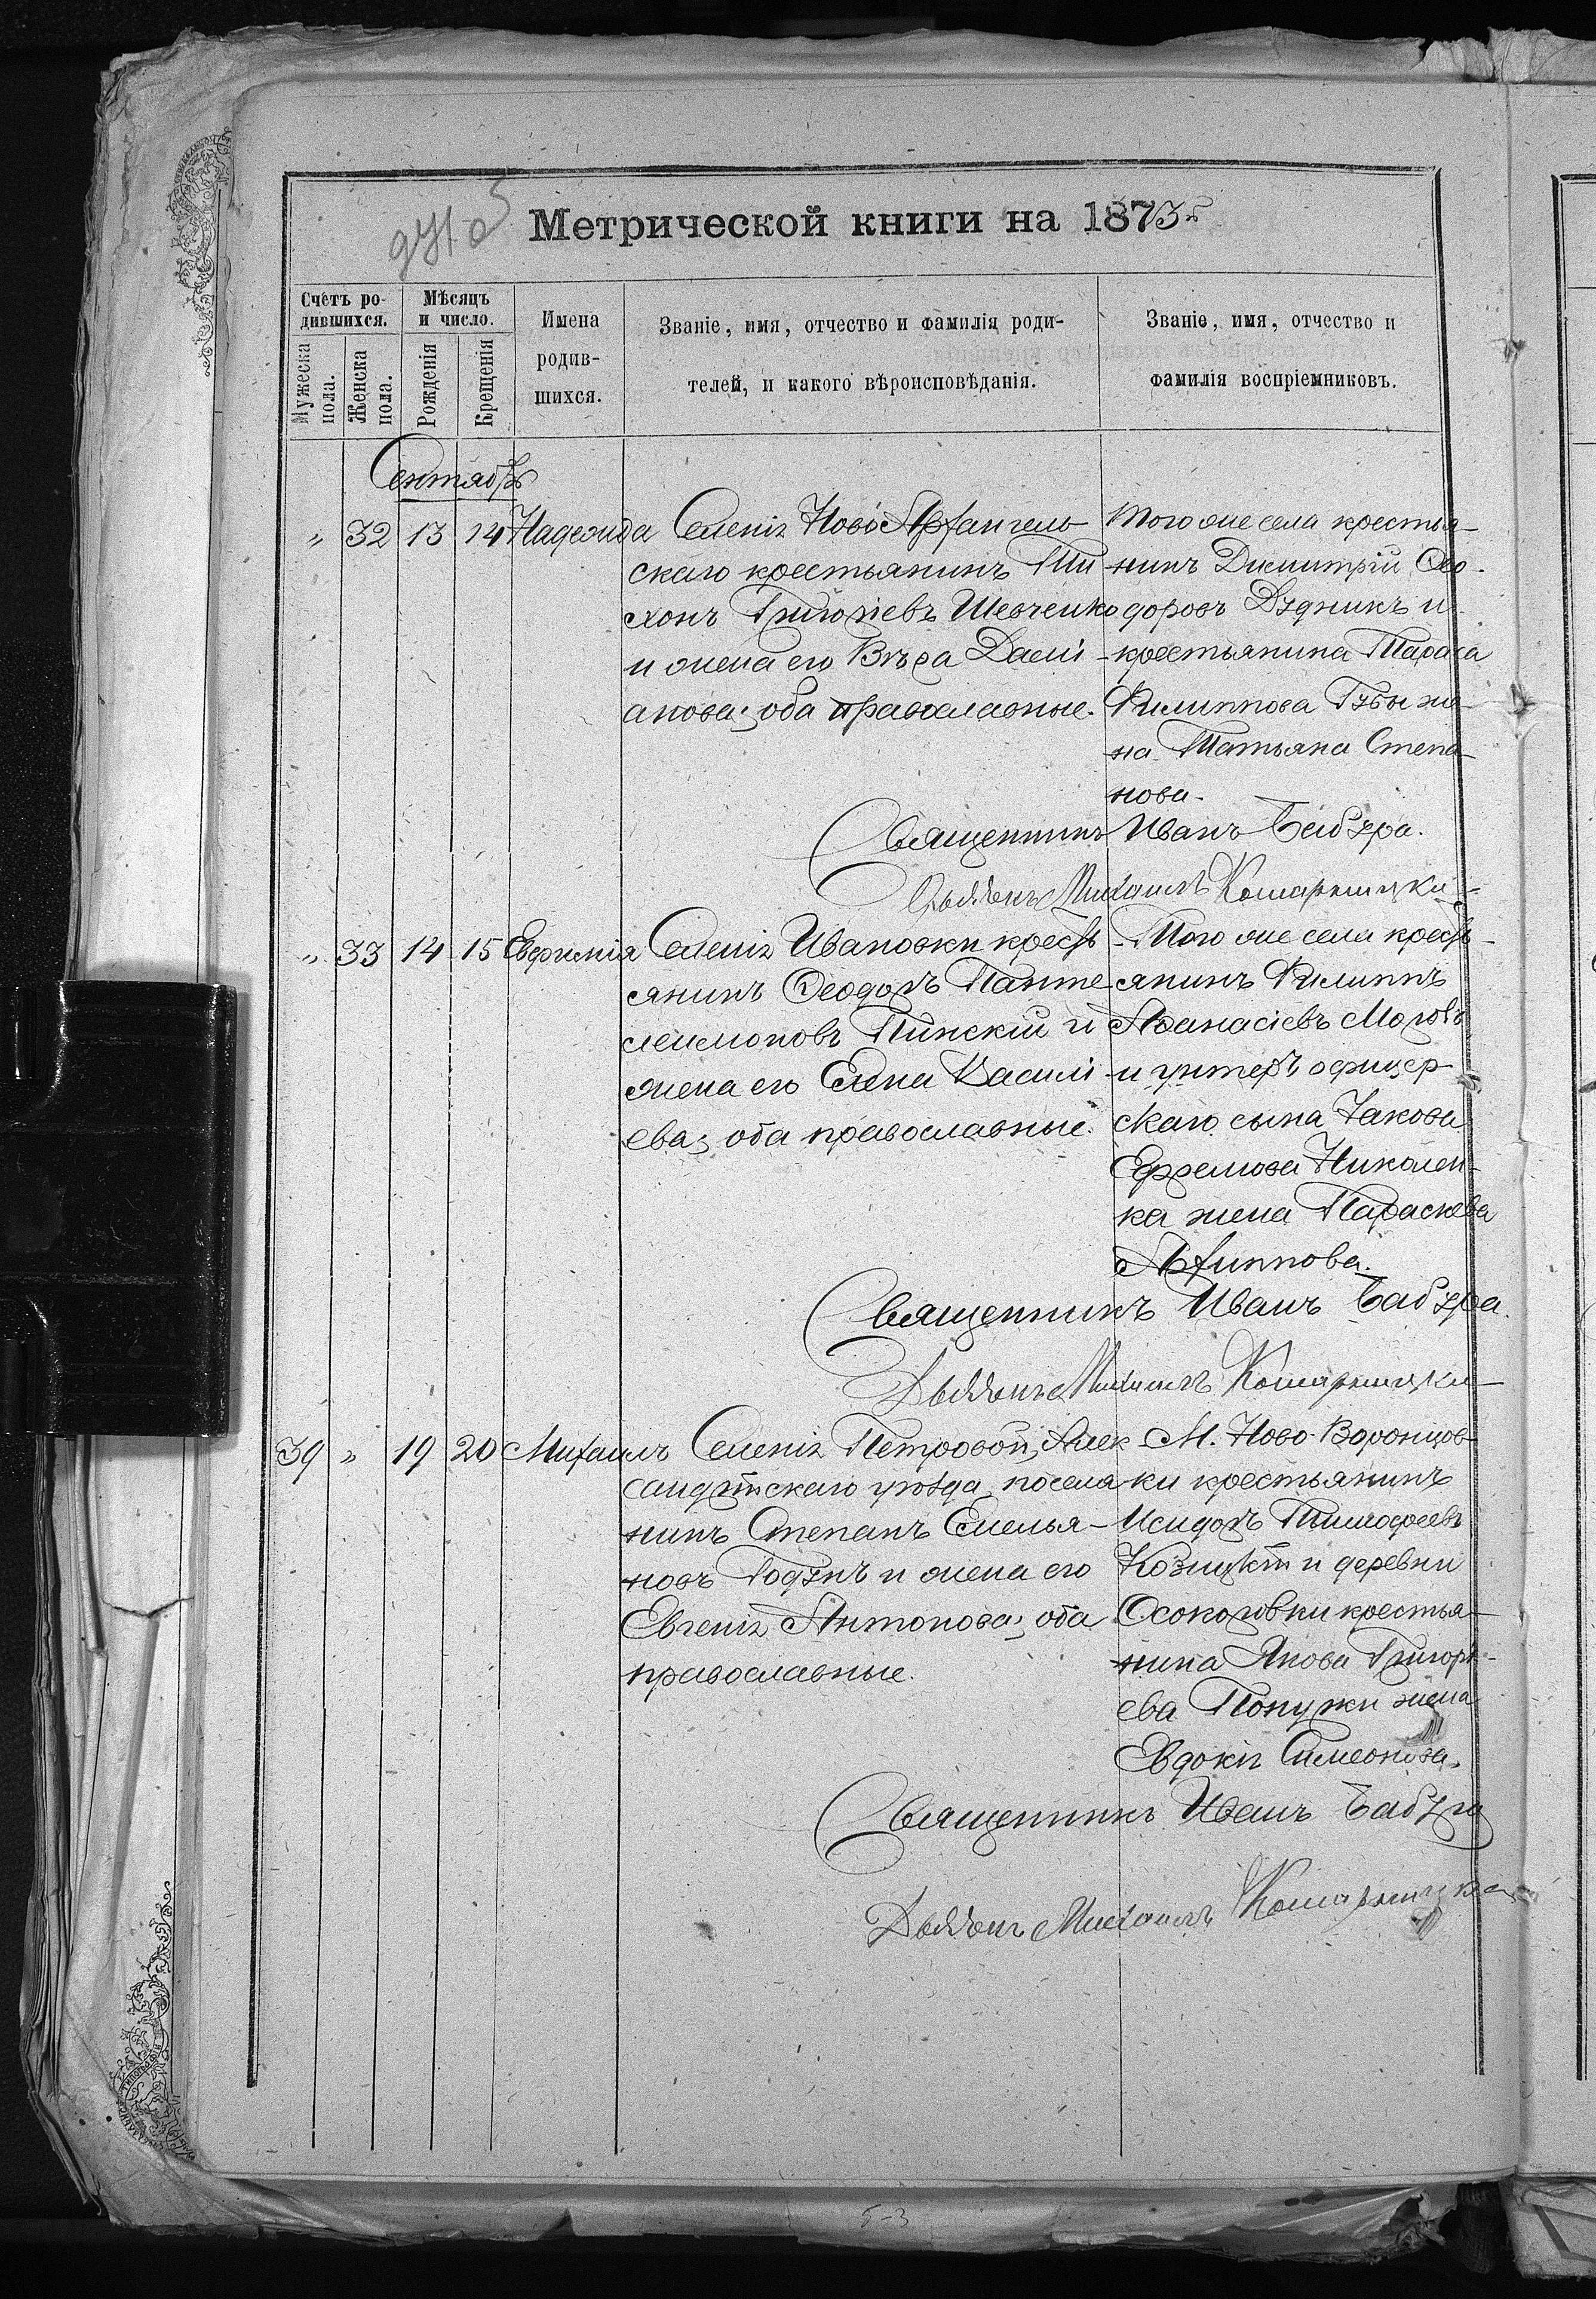 Метрической книги на 1873
Счетъ ро-
дившихся.
Мужеска
пола.
Женска
пола.
Мѣсяцъ
и число.
Рожденія
Крещенія
Имена
родив-
шихся.
Званіе, имя, отчество и фамилія роди-
телей, и какого вѣроисповѣданія.
Званіе, имя, отчество и
фамилія воспріемниковъ.
Сентябрь
„ 32 13 14 Надежда
Селенія Ново Архангель-
скаго крестьянинъ Ти
хонъ Григоріевъ Шевченко
и жена его Вѣра Дамі-
анова; оба православные.
Того же села крестья-
нинъ Димитрій Ѳео-
доровъ Дудникъ и
крестьянина Тараса
Филиппова Губы же-
на Татьяна Степа-
нова.
Священникъ Иванъ Бабура.
Дьячокъ Михаилъ
„ 33 14 15 Евфимія
Селенія Ивановки кресть-
янинъ Ѳеодоръ Панте-
леимоновъ Пинскій и
жена его Елена Васили-
ева; оба православные.
Того же села кресть-
янинъ Филиппъ
Аѳанасіевъ
и унтеръ офицер-
скаго сына Іакова
Ефремова Николен-
ка жена Параскева
Архиппова.
Священникъ Иванъ Бабура.
Дьячокъ Михаилъ
39 „ 19 20 Михаилъ
Селенія Петровой, Алек-
сандрійскаго уѣзда, поселя-
нинъ Степанъ Емелья-
новъ Годунъ и жена его
Евгенія Антонова; оба
православные.
М. Ново-Воронцов-
ки крестьянинъ
Исидоръ Тимоѳеевъ
Козицкій и деревни
Осокоровки крестья-
нина Якова Григорь-
ева жена
Евдокія Симеонова.
Священникъ Иванъ Бабура
Дьячокъ Михаилъ
5-3